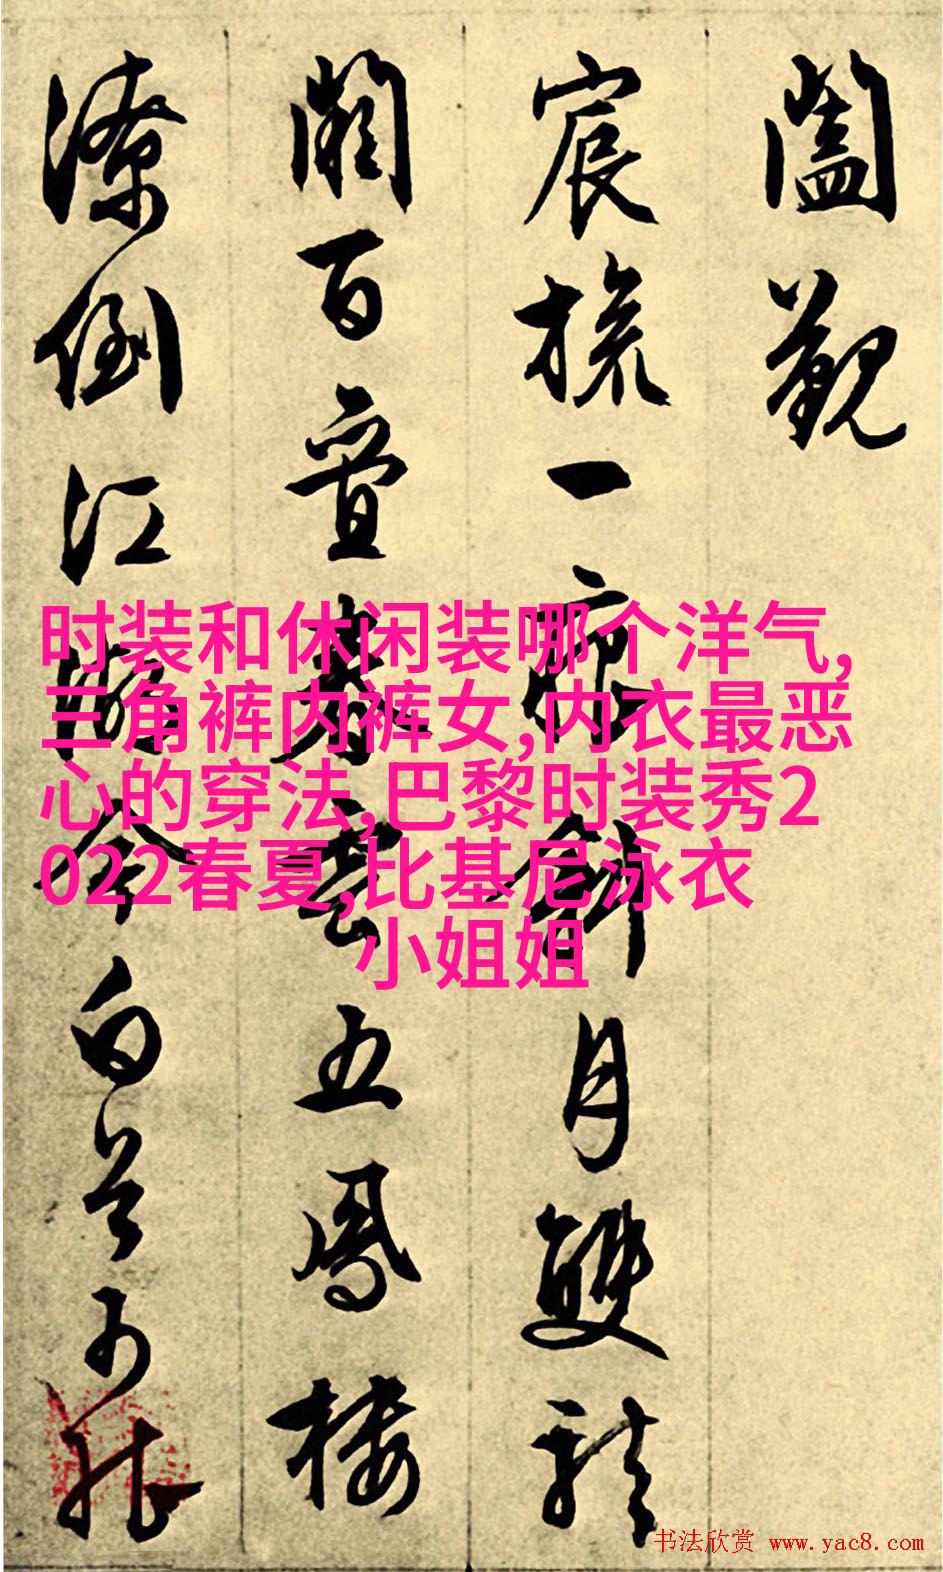 闔覲
宸旒一痕斜月雙龍
闕百疊春雲五鳳樓
潦倒江湖今白首可能
时装和休闲装哪个洋气,
三角裤内裤女,内衣最恶
心的穿法,巴黎时装秀2
022春夏,比基尼泳衣
小姐姐
书法欣赏 www.yac8.com